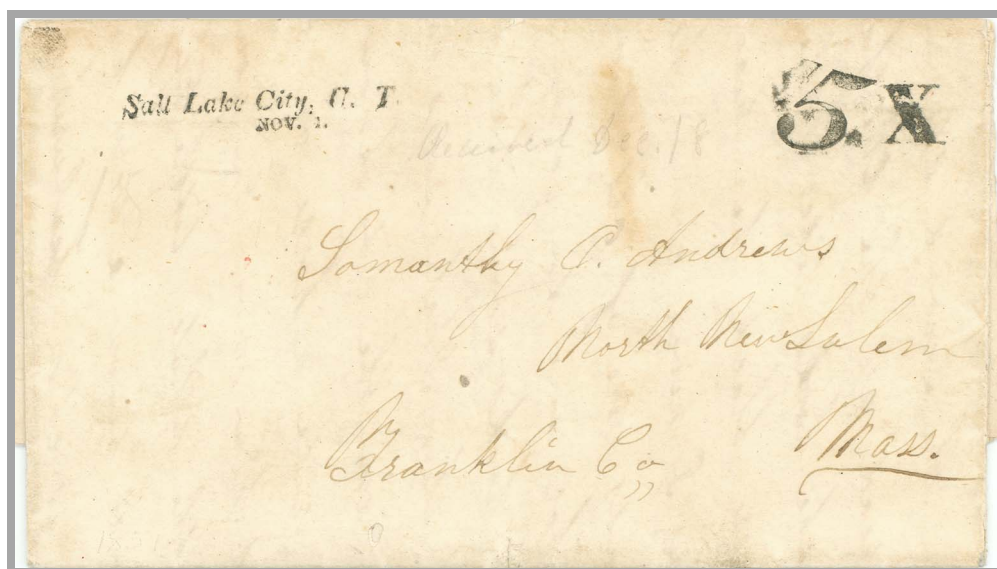 Salt Lake City, U. T.
NOV. 1.
5. X
Received Dec. 18
Somanthy P. Andrews
North New Salem
Franklin Co,,
Mass.